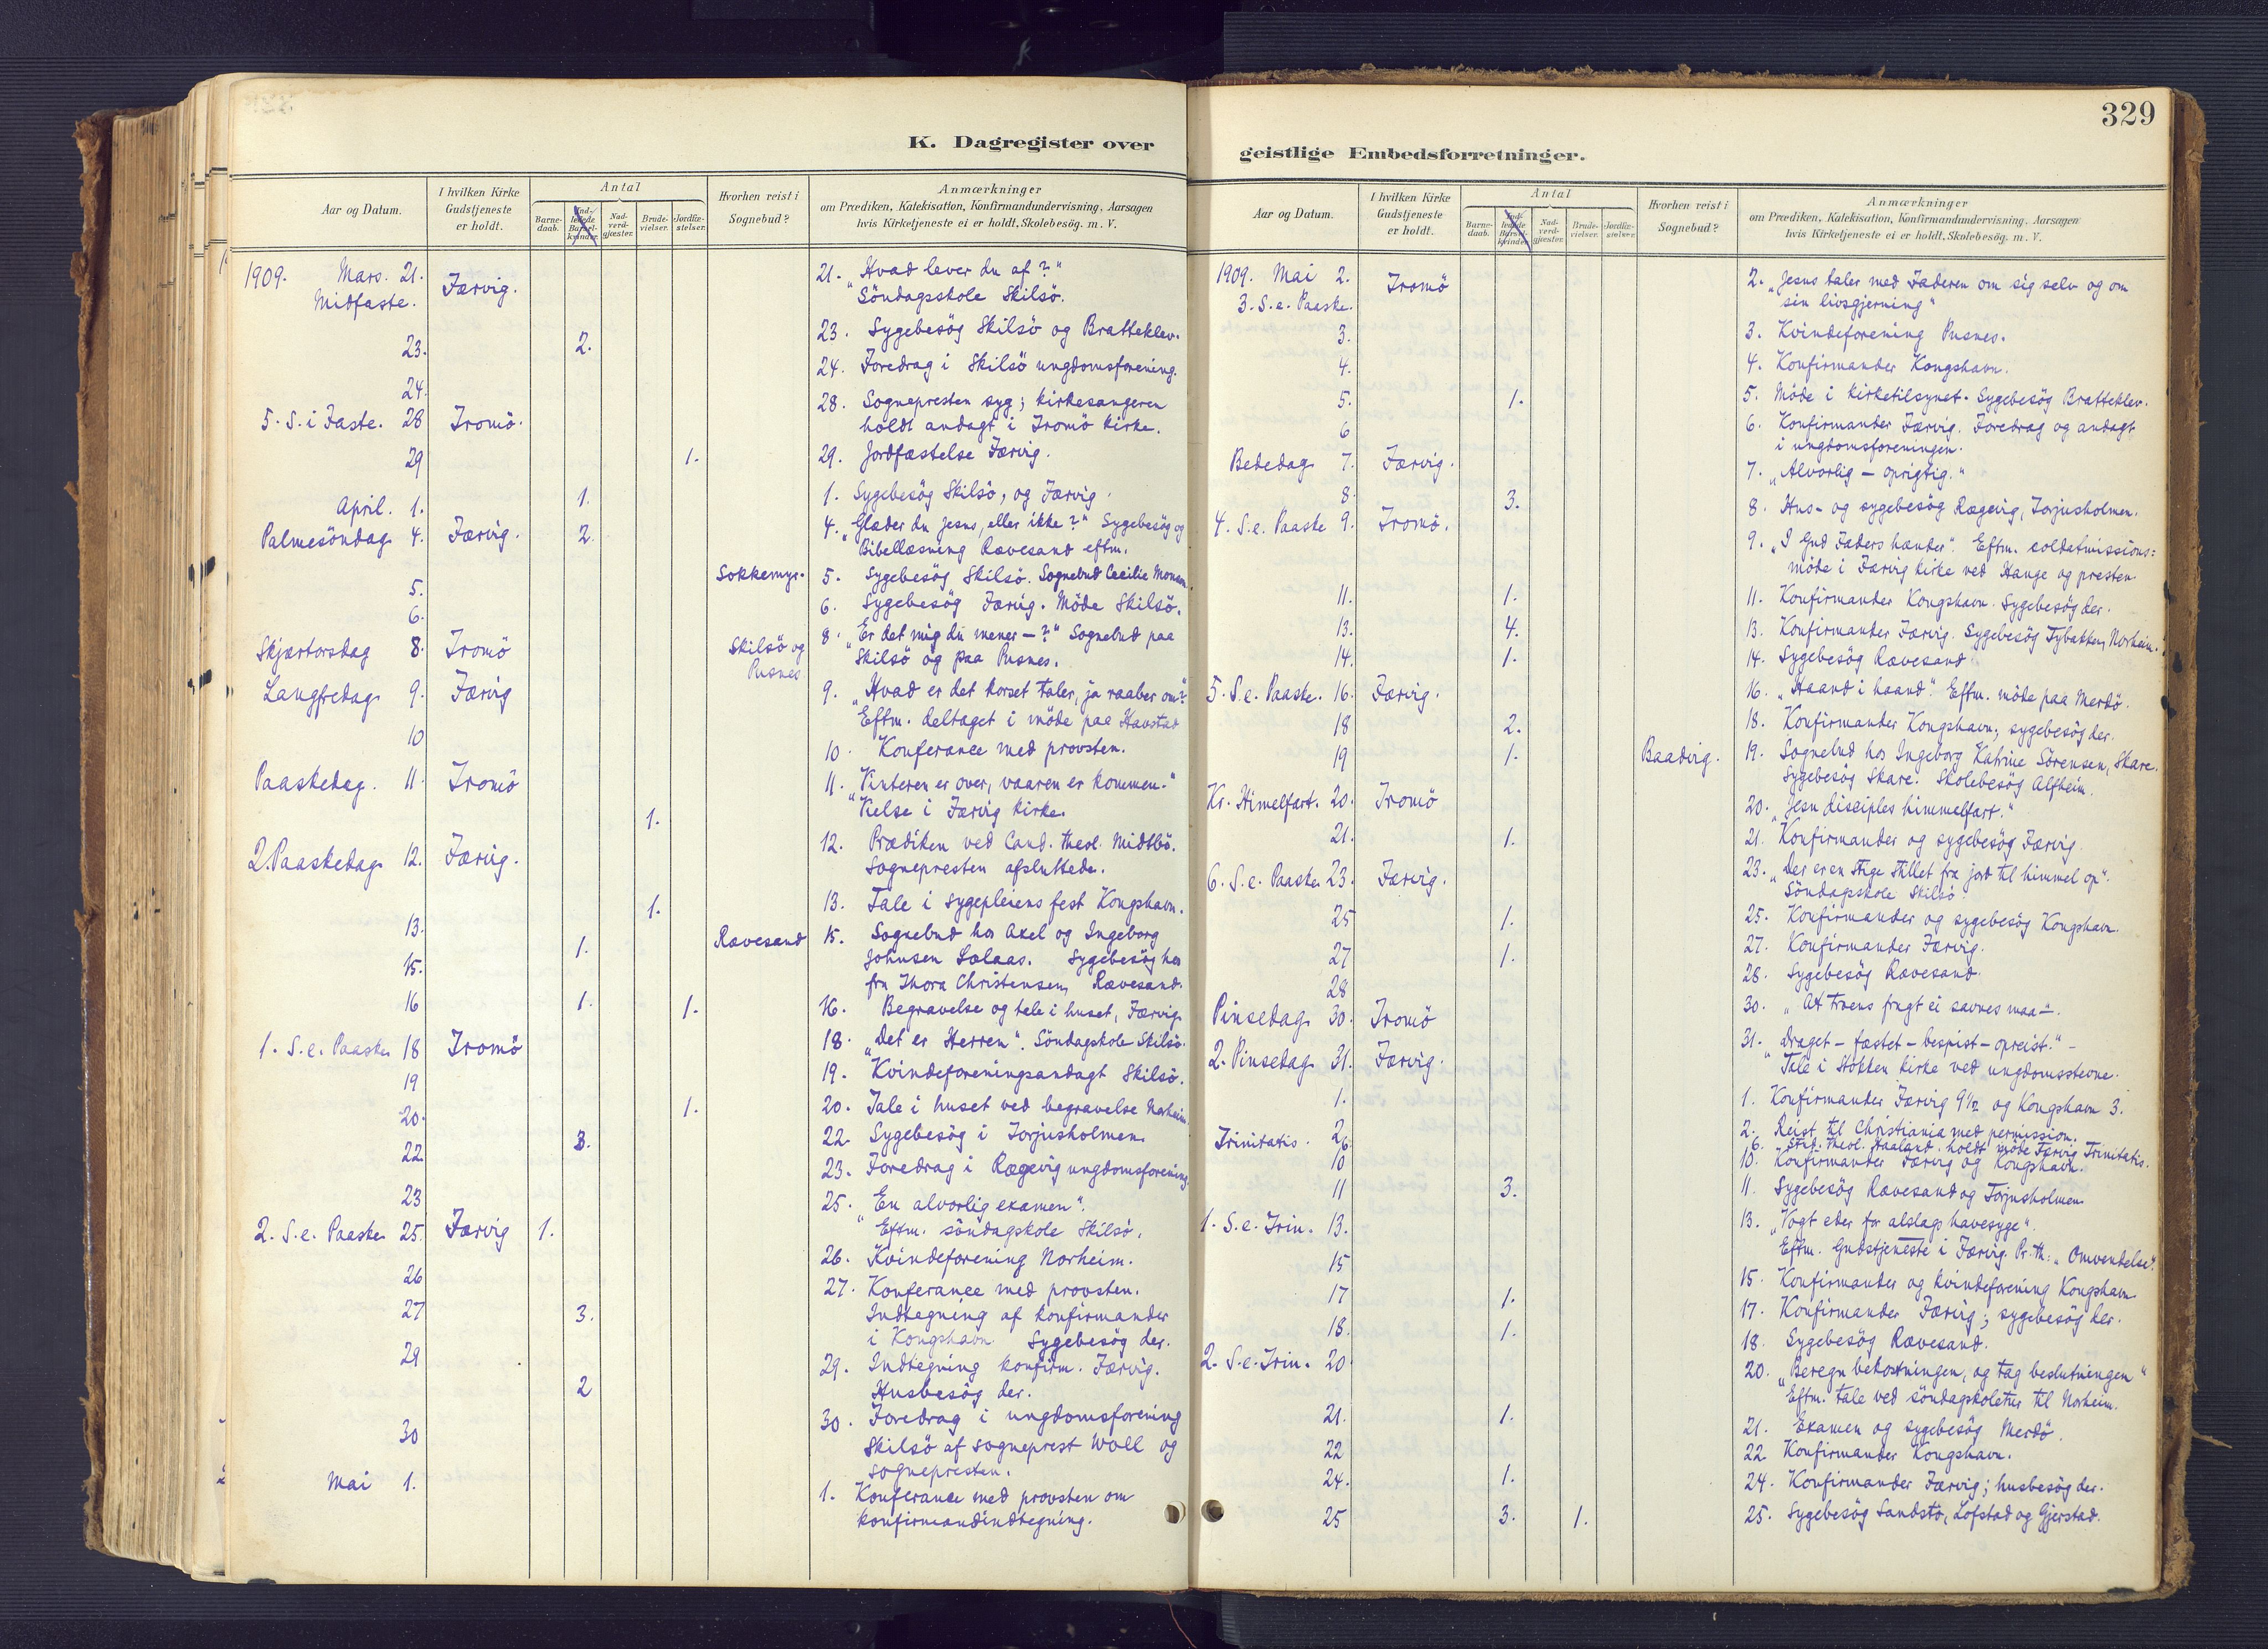 K. Dagregister over
Aar og Datum.
I hvilken Kirke Gudstjeneste er holdt.
Antal
Barne-daab.
Ind-ledede Barsel-kvinder.
Nad-verd-gjæster.
Brude-vielser.
Jordfæ-stelser.
Hvorhen reist i Sognebud?
Anmærkninger
om Prædiken, Katekisation, Konfirmandundervisning, Aarsagen
hvis Kirketjeneste ei er holdt, Skolebesög. m. V.
1909. Mars. 21. Færvig. 21. „Hvad lever du af?"
Midfaste. Söndagsskole Skilsö.
23. 2. 23. Sygebesög Skilsö og Bratteklev.
24. 24. Foredrag i Skilsö ungdomsforening.
5. S. i Faste. 28 Tromö. 28. Sognepresten syg; kirkesangeren
holdt andagt i Tromö kirke.
29 1. 29. Jordfæstelse Færvig.
April. 1. 1. 1. Sygebesög Skilsö, og Færvig.
Palmesöndag 4. Færvig. 2. 4. „Glæder du Jesus, eller ikke?" Sygebesög og
Bibellæsning Rævesand eftm.
5. Sokkemyr. 5. Sygebesög Skilsö. Sognebud Cecilie
6. 6. Sygebesög Færvig. Möde Skilsö.
Skjærtorsdag 8. Tromö Skilsö og Pusnes. 8. „Er det mig du mener –?" Sognebud paa
Skilsö og paa Pusnes.
Langfredag 9. Færvig 9. „Hvad er det korset taler, ja raaber om?"
Eftm. deltaget i möde paa Havstad
10 10. Konferance med provsten.
Paaskedag. 11. Tromö 11. „Vinteren er over, vaaren er kommen."
1. Vielse i Færvig kirke.
2. Paaskedag 12. Færvig. 12. Prædiken ved Cand. theol. Midtbö.
Sognepresten afsluttede.
13. 1. 13. Tale i sygepleiens fest Kongshavn.
15. 1. Rævesand 15. Sognebud hos Axel og Ingeborg
Johnsen Solaas. Sygebesög hos
fru Thora Christensen, Rævesand.
16 1. 1. 16. Begravelse og tale i huset, Færvig.
1. S. e. Paaske 18 Tromö 18. „Det er Herren". Söndagskole Skilsö.
19 19. Kvindeforeningsandagt Skilsö.
20. 1. 20. Tale i huset ved begravelse Norheim
22. 3. 22. Sygebesög i Torjusholmen.
23 23. Foredrag i Rægevig ungdomsforening.
2. S. e. Paaske 25. Færvig 1. 25. „En alvorlig examen".
Eftm. söndagskole Skilsö.
26 26. Kvindeforening Norheim.
27 3. 27. Konferance med provsten.
Indtegning af konfirmander
i Kongshavn Sygebesög der.
29 2 29. Indtegning konfirm. Færvig.
Husbesög der.
30 30. Foredrag i ungdomsforening
Skilsö af sogneprest Woll og
sognepresten.
Mai 1. 1. Konferance med provsten om
konfirmandindtegning.
329
geistlige Embedsforretninger.
Aar og Datum.
I hvilken Kirke Gudstjeneste er holdt.
Antal
Barne-daab.
Ind-ledede Barsel-kvinder.
Nad-verd-gjæster.
Brude-vielser.
Jordfæ-stelser.
Hvorhen reist i Sognebud?
Anmærkninger
om Prædiken, Katekisation, Konfirmandundervisning, Aarsagen
hvis Kirketjeneste ei er holdt, Skolebesög. m. V.
1909. Mai 2. Tromö 2. „Jesus taler med Faderen om sig selv og om
3. S. e. Paaske. sin livsgjerning"
3. 3. Kvindeforening Pusnes.
4. 4. Konfirmander Kongshavn.
5. 1. 5. Möde i kirketilsynet. Sygebesög Bratteklev.
6 6. Konfirmander Færvig. Foredrag og andagt
i ungdomsforeningen.
Bededag 7. Færvig. 7. „Alvorlig – oprigtig."
8. 3. 8. Hus- og sygebesög Rægevig, Torjusholmen.
4. S. e. Paaske 9. Tromö. 9. „I Gud Faders hænder". Eftm. soldatmissions:
möde i Færvig kirke ved Hauge og presten
11. 1. 11. Konfirmander Kongshavn. Sygebesög der.
13. 4. 13. Konfirmander Færvig. Sygebesög Tybakken, Norheim.
14. 1. 14. Sygebesög Rævesand
5. S. e. Paaske. 16. Færvig. 16. „Haand i haand". Eftm. möde paa Merdö.
18 2. 18. Konfirmander Kongshavn, sygebesög der.
19 1. Baadvig. 19. Sognebud hos Ingeborg Katrine Sörensen, Skare.
Sygebesög Skare. Skolebesög Alfheim.
Kr. Himelfart. 20. Tromö 20. „Jesu disciples himmelfart."
21. 1. 21. Konfirmander og sygebesög Færvig.
6. S. e. Paaske 23. Færvig. 23. „Der er en stige stillet fra jord til himmel op".
Söndagsskole Skilsö
25 1. 25. Konfirmander og sygebesög Kongshavn.
27 1. 27. Konfirmander Færvig.
28 28. Sygebesög Rævesand.
Pinsedag 30. Tromö 30. „At troens frugt ei savnes maa".
2. Pinsedag 31. Færvig. 31. „Draget – fæstet – bespist – opreist." –
Tale i Stokken kirke ved ungdomsstevne.
1. 1. Konfirmander Færvig 9½ og Kongshavn 3.
2. 2. Reist til Christiania med permission.
Trinitatis. 6. 6. Stud. theol. Haaland holdt möde Færvig Trinitatis.
10 10. Konfirmander Færvig og Kongshavn.
11 3. 11. Sygebesög Rævesand og Torjusholmen
1. S. e. Trin. 13. 13. „Vogt eder for alslags havesyge".
Eftm. Gudstjeneste i Færvig. Pr. th: „Omvendelse".
15 15. Konfirmander og kvindeforening Kongshavn
17 1. 17. Konfirmander Færvig; sygebesög her.
18. 1. 18. Sygebesög Rævesand.
2. S. e. Trin. 20 20. „Beregn bekostningen, og tag beslutningen"
Eftm. tale ved söndagskoletur til Norheim.
21. 1. 21. Examen og sygebesög Merdö.
22 22 Konfirmander Kongshavn.
24. 1. 24. Konfirmander Færvig; husbesög der.
25 3. 1. 25. Sygebesög Sandstö, Lofstad og Gjerstad.